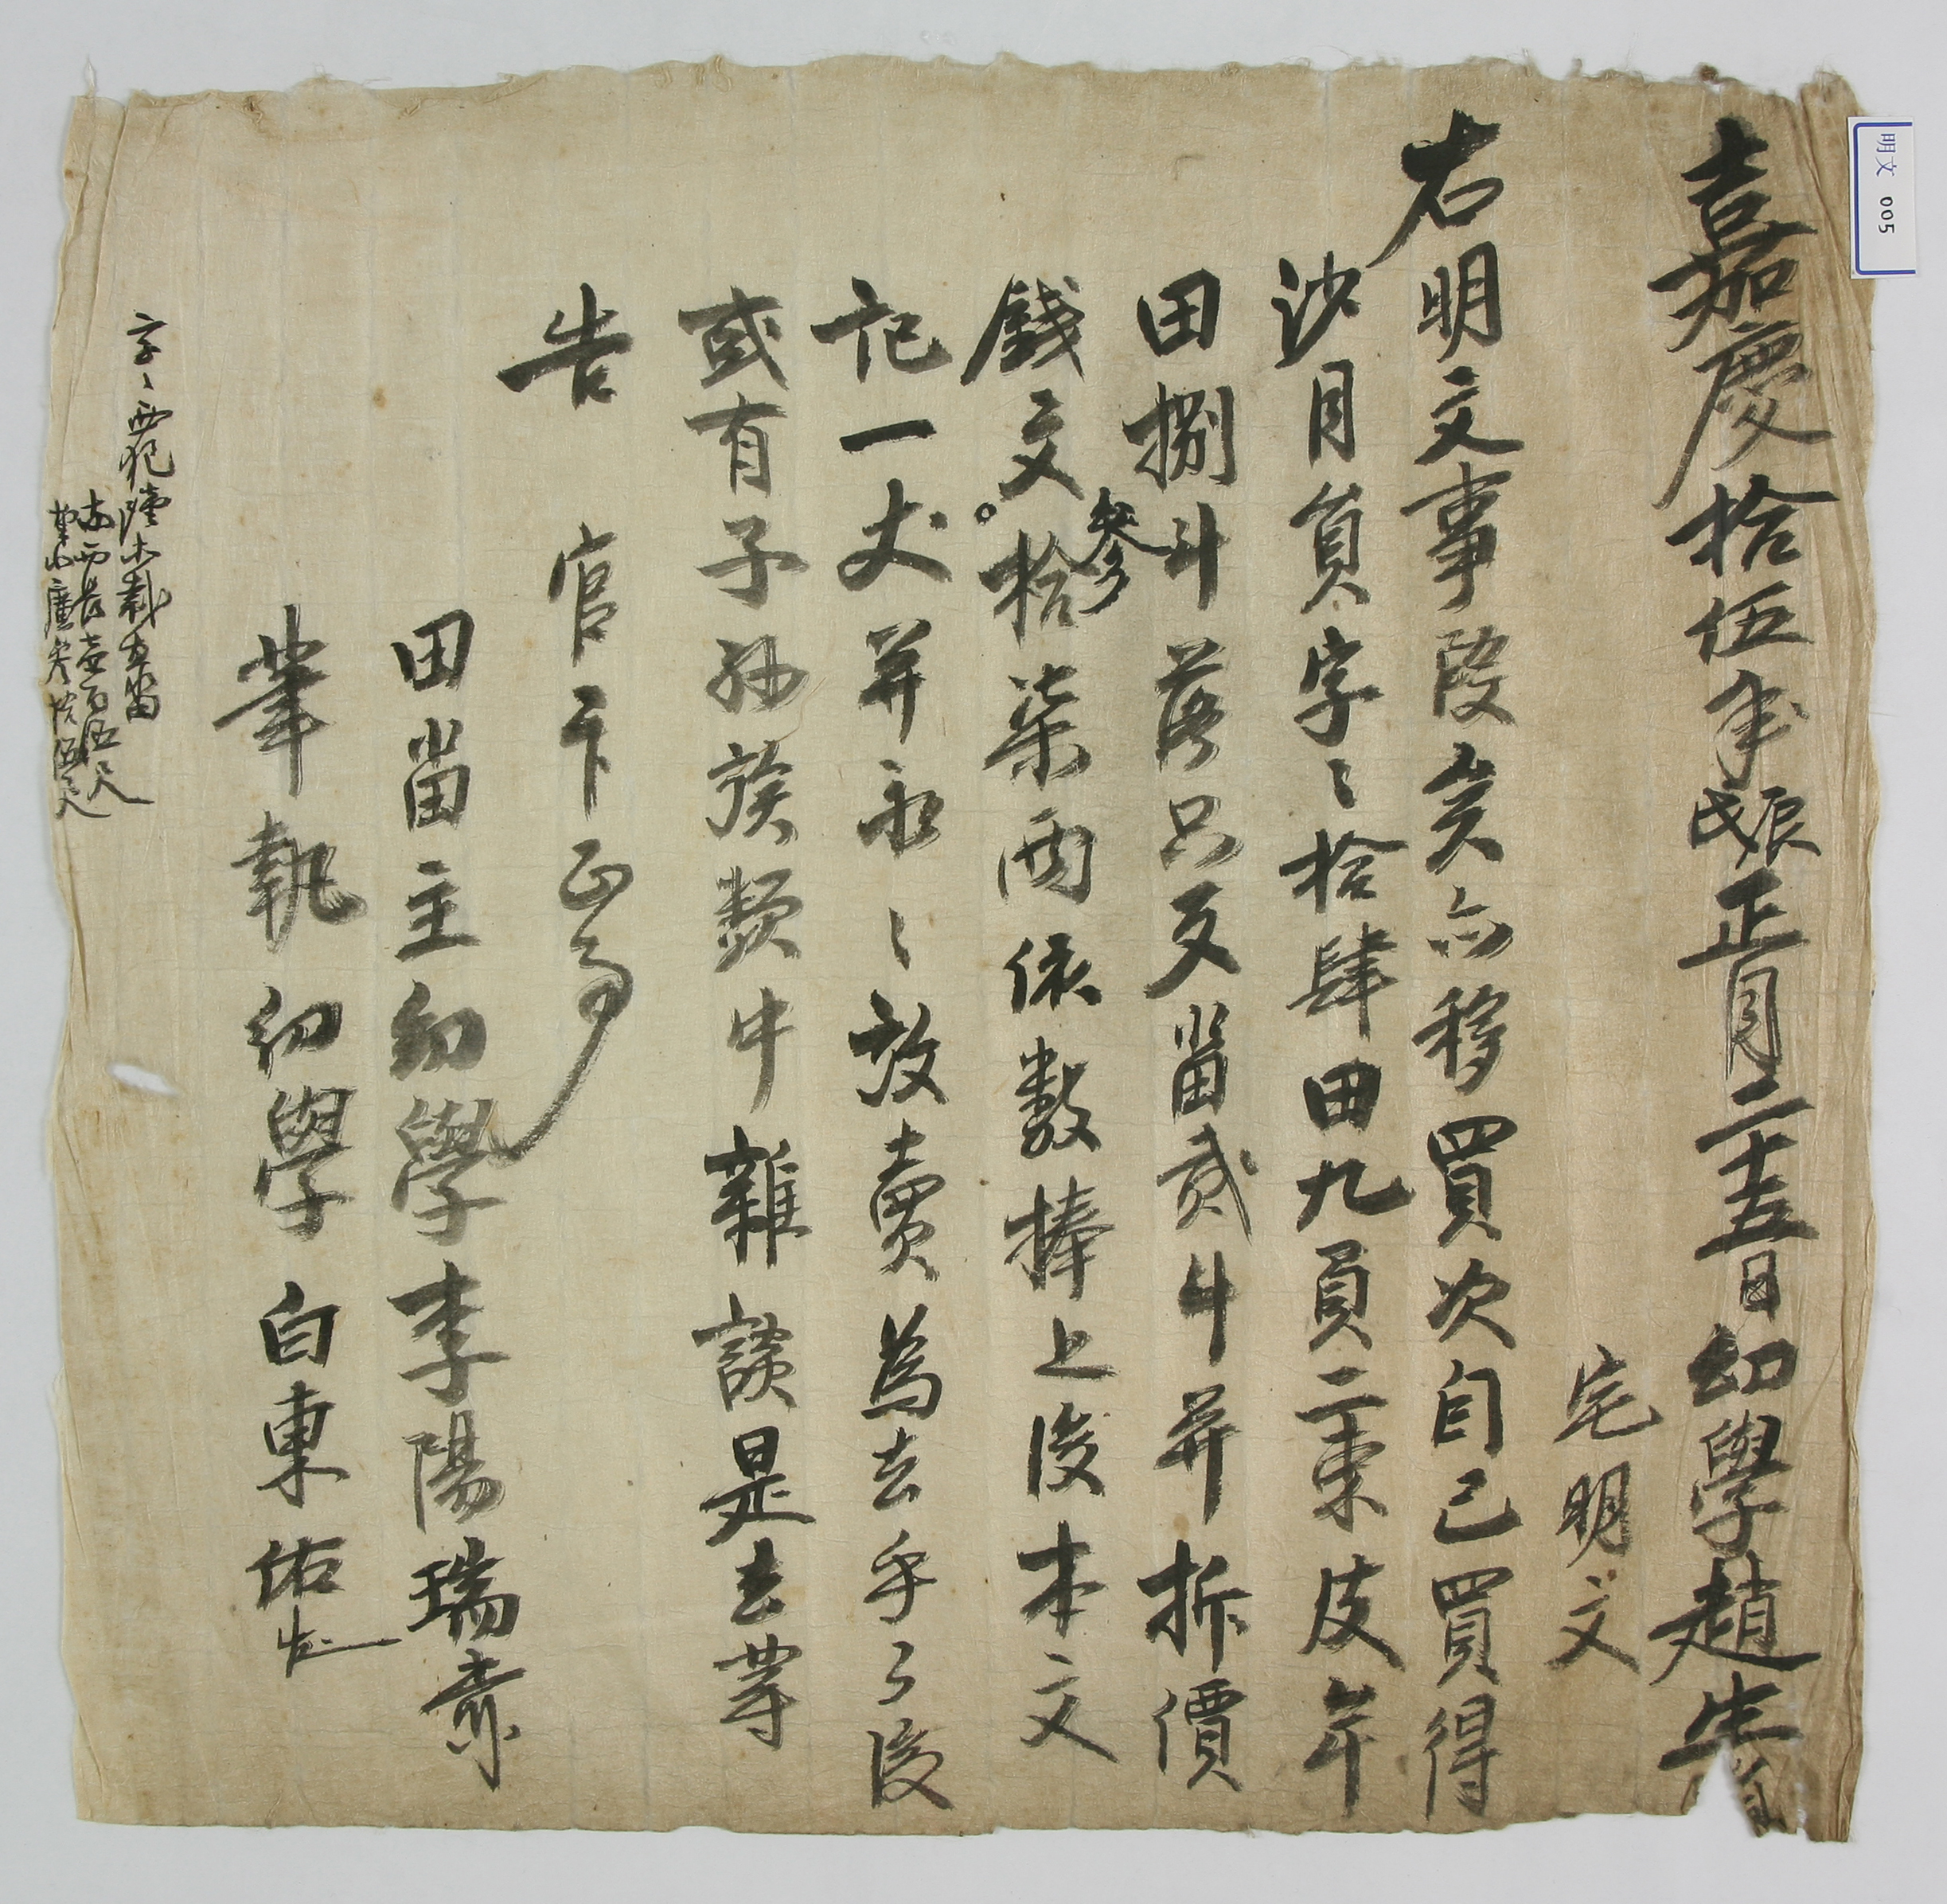 嘉慶拾伍年戊辰正月二十五日幼學趙生員
宅明文
右明文事段矣亦移買次自己買得
沙月員字〻拾肆田九負二束皮牟
田捌斗落只及畓貳斗并折價
錢文參拾柒両依數捧上後本文
記一丈并永〻放賣爲去乎日後
或有子孫族類中雜談是去等
告官卞正事
田畓主幼學李陽瑞
筆執幼學白東佑
字〻
南西長壹百伍尺